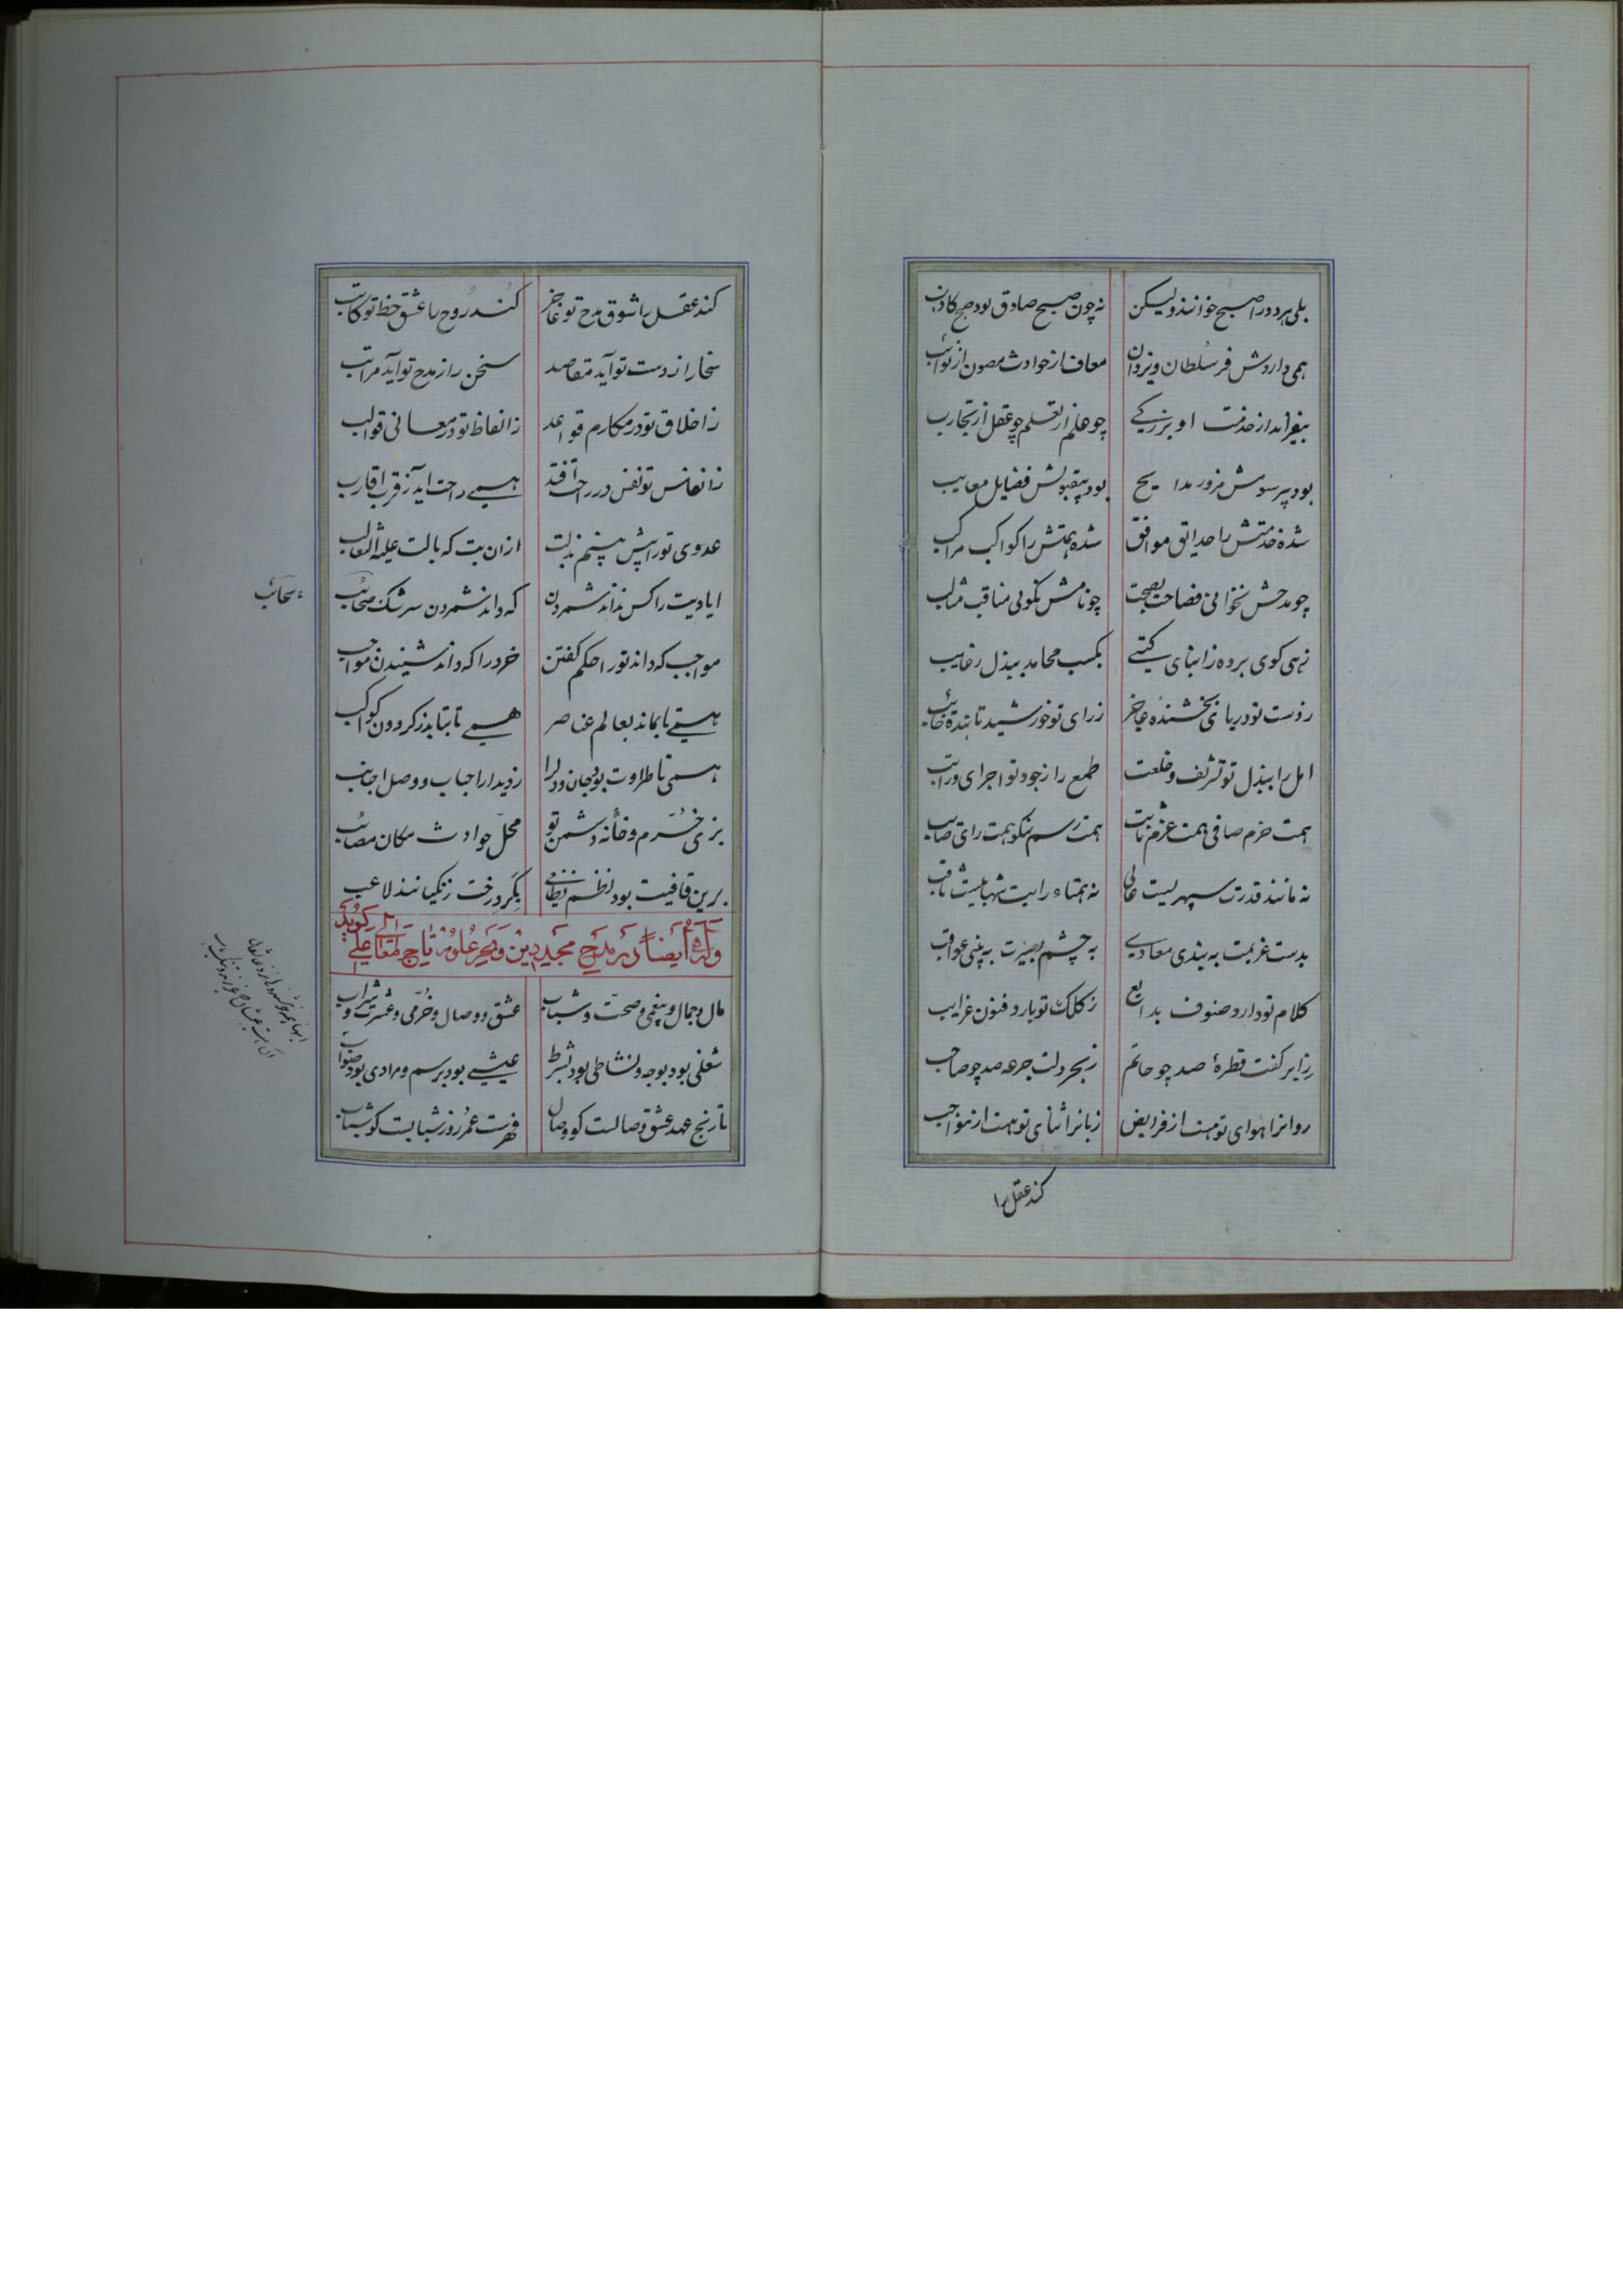 بلی هر دو را صبح خوانند ولیکن نه چون صبح صادق بود صبح کاذب
همی داردش فر سلطان و یزدان معاف از حوادث مصون از نوائب
بیفزاید از خدمت او بزرگی چو علم از تعلم چو عقل از تجارب
بود پر سوش مزور مدایح بود بیقبولش فضایل معایب
شده خدمتش را حدایق موافق شده همتش را کواکب مراکب
چو مدحش نخوانی فضاحت فصیحت چو نامش نگویی مناقب مثالب
زهی گوی برده ز ابنای گیتی بکسب محامد ببذل رغایب
ز دست تو دریای بخشنده عاجز ز رای تو خورشید تابنده خائب
امل را ببذل تو تشریف و خلعت طمع را ز جود تو اجرای و راتب
همت حزم صافی همت عزم ثابت همت رسم نیکو همت رای صایب
نه مانند قدرت سپهریست عالی نه همتاء رایت شهابیست ثاقب
بدست عزیمت به بندی معادی به چشم بصیرت به بینی عواقب
کلام تو دارد صنوف بدایع ز کلک تو بارد فنون غرایب
ز ابر کفت قطرهٔ صد چو حاتم ز بحر دلت جرعه صد چو صاحب
روانرا هوای تو هست از فرایض زبانرا ثنای تو هست از مواجب
کند عقل را
کند عقل را شوق مدح تو عاجز کند روح را عشق خط تو کاتب
سخا را ز دست تو آید مقاصد سخن را ز مدح تو آید مراتب
ز اخلاق تو در مکارم قواعد ز الفاظ تو در معانی قوالب
ز انفاس تو نفس در راحت افتد همی راحت آید ز قرب اقارب
عدوی تو را پیش بینم مذلت از ان بت که بالت علیه الثعالب
ایادیت را کس نداند شمردن که داند شمردن سرشک سحائب
سحائب
مواجب که داند تو را حکم گفتن خرد را که داند شنیدن مواجب
همی تا بماند بعالم عناصر همی تا بتابد ز گردون کواکب
همی تا طراوت بود جان و دلرا ز دیدار احباب و وصل اجانب
بزی خرم و خانه دشمن تو محل حوادث مکان مصائب
برین قافیت بود نظم نظامی بگرد رخت زنگیانند لاعب
وله ایضاً در مدح مجید دین و بحر علوم تاج المعالی علی گوید
مال و جمال و بیغمی و صحت و شباب عشق و وصال و خرمی و عشرت و شراب
شغلی بود بوجه و نشاطی بود بشرط عیشی بود برسم و مرادی بود صواب
تاریخ عهد عشق وصالت کو وصال فهرست عمر روز شبابست کو شباب